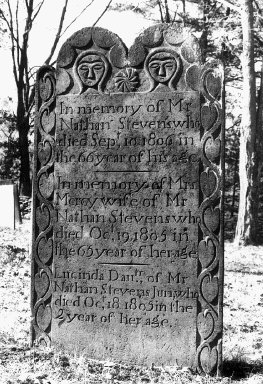 In memory of Mr
Nathan Stevens who
died Sept. 10. 1806 in
the 66 year of his age.
In memory of Mrs
Mercy wife of Mr
Nathan Stevens who
died Oct. 19. 1805 in
the 65 year of her age.
Lucinda Daut. of Mr
Nathan Stevens Jun. who
died Oct. 18. 1805 in the
2 year of her age.